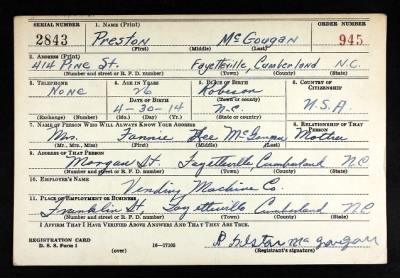 SERIAL NUMBER 1. NAME (Print) ORDER NUMBER
2843 Preston McGougan 945
(First) (Middle) (Last)
2. ADDRESS (Print)
414 Pine St. Fayetteville, Cumberland N.C.
(Number and street or R. F. D. number) (Town) (County) (State)
3. TELEPHONE 4. AGE IN YEARS 5. PLACE OF BIRTH 6. COUNTRY OF CITIZENSHIP
None 26 Robeson
DATE OF BIRTH (Town or county)
4-30-14 N.C. U.S.A.
(Exchange) (Number) (Mo.) (Day) (Yr.) (State or country)
7. NAME OF PERSON WHO WILL ALWAYS KNOW YOUR ADDRESS 8. RELATIONSHIP OF THAT PERSON
Mrs. Fannie McGougan Mother
(Mr., Mrs., Miss) (First) (Middle) (Last)
9. ADDRESS OF THAT PERSON
Morgan St. Fayetteville, Cumberland NC
(Number and street or R. F. D. number) (Town) (County) (State)
10. EMPLOYER'S NAME
Vending Machine Co.
11. PLACE OF EMPLOYMENT OR BUSINESS
Franklin St. Fayetteville Cumberland NC
(Number and street or R. F. D. number) (Town) (County) (State)
I AFFIRM THAT I HAVE VERIFIED ABOVE ANSWERS AND THAT THEY ARE TRUE.
REGISTRATION CARD
D. S. S. Form 1 (over) 16-17105 (Registrant's signature)
McGougan